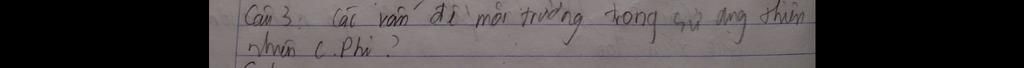 Câu 3. Các vấn đề môi trường trong sử dụng thiên
nhiên C.Phi?